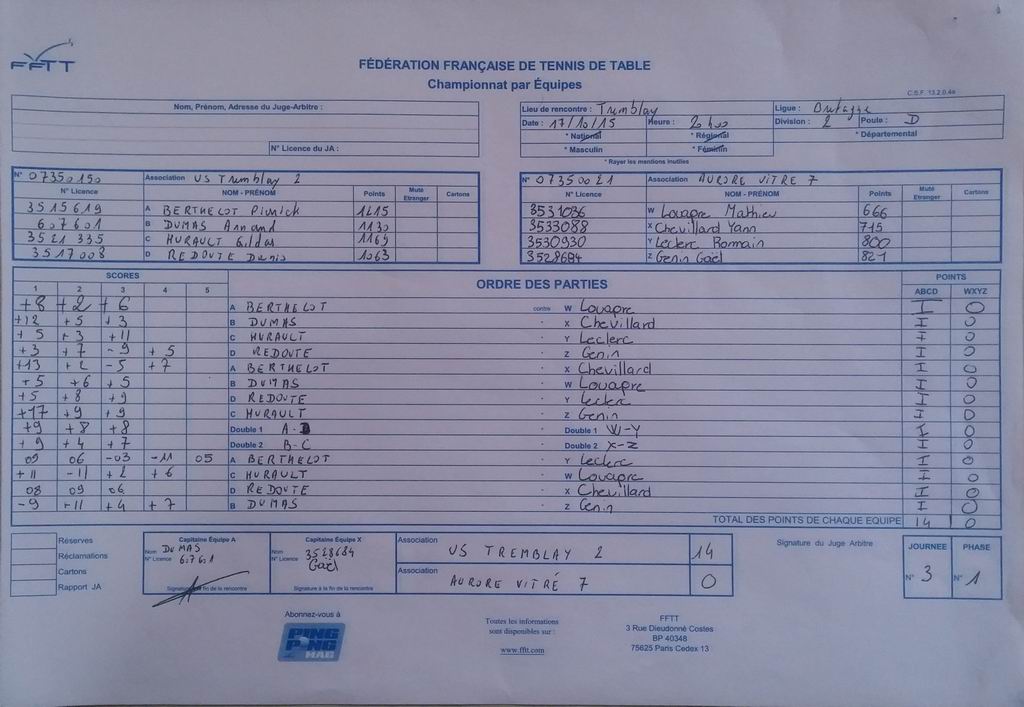 FFTT
FÉDÉRATION FRANÇAISE DE TENNIS DE TABLE
Championnat par Équipes
C.S.F. 13.2.0.4a
Nom, Prénom, Adresse du Juge-Arbitre :
N° Licence du JA :
Lieu de rencontre : Tremblay Ligue : Bretagne
Date : 17/10/15 Heure : 20h00 Division : 2 Poule : D
* National * Régional * Départemental
* Masculin * Féminin
* Rayer les mentions inutiles
N° 07350150 Association US Tremblay 2
N° Licence NOM - PRÉNOM Points Muté Etranger Cartons
3515619 A BERTHELOT Pierrick 1215
607601 B DUMAS Armand 1130
3521335 C HURAULT Gildas 1169
3517008 D REDOUTE Denis 1063
N° 07350021 Association AURORE VITRE 7
N° Licence NOM - PRÉNOM Points Muté Etranger Cartons
3531036 W Louapre Mathieu 666
3533088 X Chevillard Yann 715
3530930 Y Leclerc Romain 800
3528684 Z Genin Gaël 821
SCORES ORDRE DES PARTIES POINTS
1 2 3 4 5 ABCD WXYZ
+8 +2 +6 A BERTHELOT contre W Louapre I 0
+12 +5 +3 B DUMAS - X Chevillard I 0
+5 +3 +11 C HURAULT - Y Leclerc I 0
+3 +7 -9 +5 D REDOUTE - Z Genin I 0
+13 +2 -5 +7 A BERTHELOT - X Chevillard I 0
+5 +6 +5 B DUMAS - W Louapre I 0
+5 +8 +9 D REDOUTE - Y Leclerc I 0
+17 +9 +9 C HURAULT - Z Genin I 0
+9 +8 +8 Double 1 A-D Double 1 W-Y I 0
+9 +4 +7 Double 2 B-C Double 2 X-Z I 0
09 06 -03 -11 05 A BERTHELOT - Y Leclerc I 0
+11 -11 +2 +6 C HURAULT - W Louapre I 0
08 09 06 D REDOUTE - X Chevillard I 0
-9 +11 +4 +7 B DUMAS - Z Genin I 0
TOTAL DES POINTS DE CHAQUE EQUIPE 14 0
Réserves
Réclamations
Cartons
Rapport JA
Capitaine Équipe A
Nom DUMAS
N° Licence 607601
Signature à la fin de la rencontre
Capitaine Équipe X
Nom 3528684
N° Licence Gaël
Signature à la fin de la rencontre
Association US TREMBLAY 2 14
Association AURORE VITRÉ 7 0
Signature du Juge Arbitre
JOURNEE PHASE
N° 3 N° 1
Abonnez-vous à
PING PONG MAG
Toutes les informations
sont disponibles sur :
www.fftt.com
FFTT
3 Rue Dieudonné Costes
BP 40348
75625 Paris Cedex 13